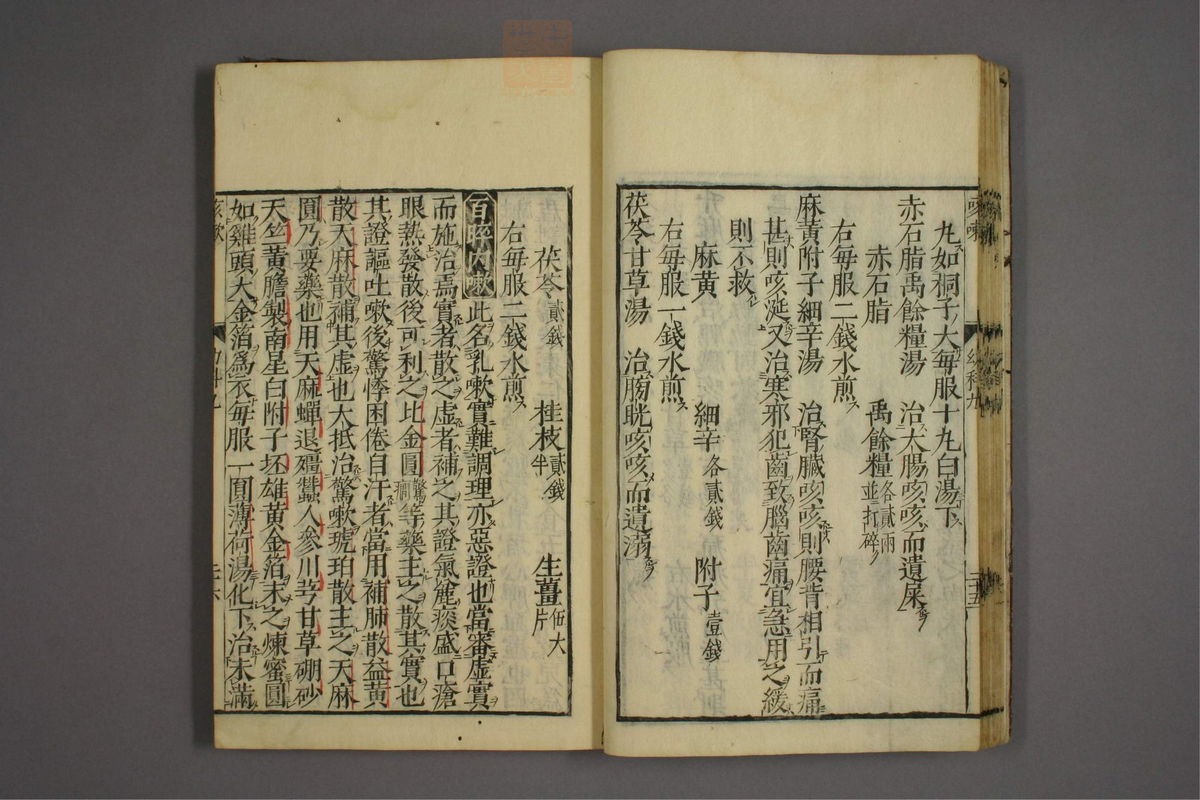 丸如桐子大每服十丸白湯下
赤石脂禹餘糧湯　治大腸咳咳而遺屎
赤石脂　禹餘糧各貳兩並打碎
右每服二錢水煎
麻黃附子細辛湯　治腎臟咳咳則腰背相引而痛
甚則咳涎又治寒邪犯齒致腦齒痛宜急用之緩
則不救
麻黃　細辛各貳錢　附子壹錢
右每服一錢水煎
茯苓甘草湯　治膀胱咳咳而遺溺
茯苓貳錢　桂枝貳錢半　生薑伍大片
右每服二錢水煎
百晬內嗽此名乳嗽實難調理亦惡證也當審虛實
而施治焉實者散之虛者補之其證氣麄痰盛口瘡
眼熱發散後可利之比金圓驚等藥主之散其實也
其證謳吐嗽後驚悸困倦自汗者當用補肺散益黃
散天麻散補其虛也大抵治驚嗽琥珀散主之天麻
圓乃要藥也用天麻蟬退殭蠶人參川芎甘草硼砂
天竺黃膽製南星白附子坯雄黃金箔末之煉蜜圓
如雞頭大金箔爲衣每服一圓薄荷湯化下治未滿
咳嗽　幼科九　二十六